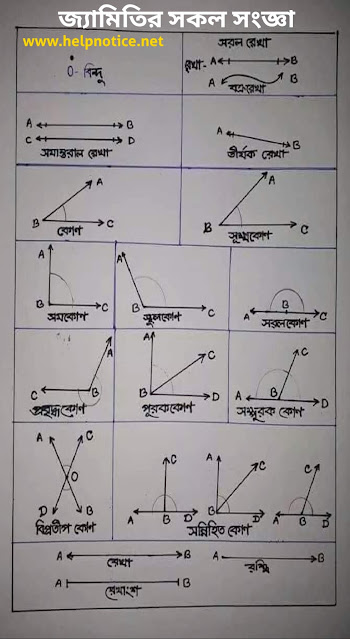 জ্যামিতির সকল সংজ্ঞা
www.helpnotice.net
O- বিন্দু
সরল রেখা
রেখা- A B
A B
বক্ররেখা
A B
C D
সমান্তরাল রেখা
A B
তীর্যক রেখা
A
B C
কোণ
A
B C
সূক্ষ্মকোণ
A
B C
সমকোণ
A
B C
স্থূলকোণ
A B C
সরলকোণ
A
C B
প্রবৃদ্ধকোণ
A
C
B D
পূরককোণ
C
A B D
সম্পূরক কোণ
A C
O
D B
বিপ্রতীপ কোণ
C
A B D
A
C
B D
C
A B D
সন্নিহিত কোণ
A B
রেখা
A B
রশ্মি
A B
রেখাংশ